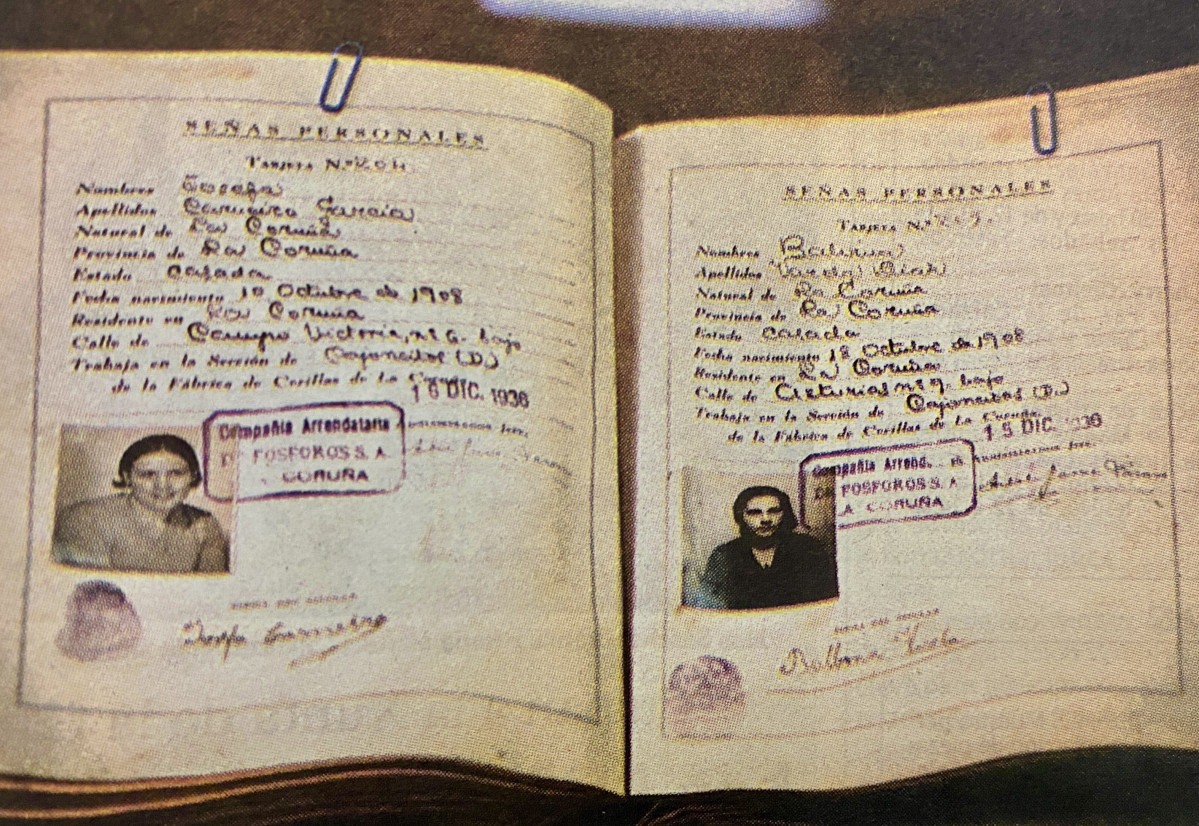 SEÑAS PERSONALES
TARJETA N.º 204
Nombres Josefa
Apellidos Carneiro García
Natural de La Coruña
Provincia de La Coruña
Estado casada
Fecha nacimiento 10 Octubre de 1908
Residente en La Coruña
Calle de Campo Victoria, nº 6. bajo
Trabaja en la Sección de Cajoncitos (D.)
de la Fábrica de Cerillas de La Coruña
16 DIC. 1936
Compañía Arrendataria
DE FOSFOROS S. A.
CORUÑA
FIRMA DEL OBRERO
Josefa Carneiro
SEÑAS PERSONALES
TARJETA N.º
Nombres Balbina
Apellidos
Natural de La Coruña
Provincia de La Coruña
Estado casada
Fecha nacimiento 18 Octubre de 1908
Residente en La Coruña
Calle de Asturias nº 9. bajo
Trabaja en la Sección de Cajoncitos (D.)
de la Fábrica de Cerillas de La Coruña
15 DIC. 1936
Compañía Arrend.
DE FOSFOROS S. A.
LA CORUÑA
FIRMA DEL OBRERO
Balbina